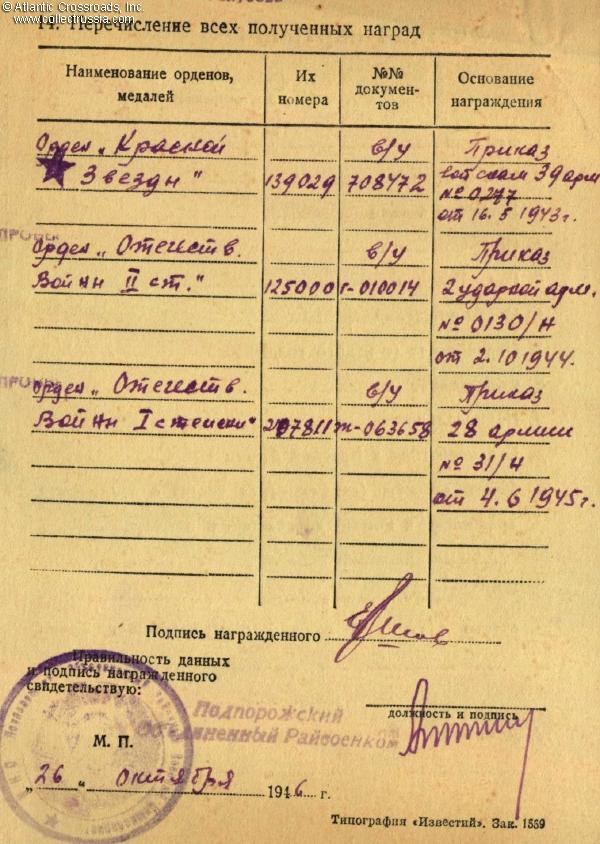 © Atlantic Crossroads, Inc.
www.collectrussia.com
14. Перечисление всех полученных наград
Наименование орденов, медалей
Их номера
№№ документов
Основание награждения
Орден „Красной в/у Приказ
Звезды" 139029 708472 войскам 39 арм
№ 0277
от 16.5 1943г.
Орден „Отечеств. в/у Приказ
Войны II ст." 125000 г-010014 2 ударной арм.
№ 0130/н
от 2.10 1944г.
Орден „Отечеств. в/у Приказ
Войны I степени" 207811 т-063658 28 армии
№ 31/н
от 4.6 1945г.
Подпись награжденного
Правильность данных
и подпись награжденного
свидетельствую:
должность и подпись
Подпорожский
Объединенный Райвоенком
М. П.
„26" октября 1946 г.
Типография «Известий». Зак. 1559